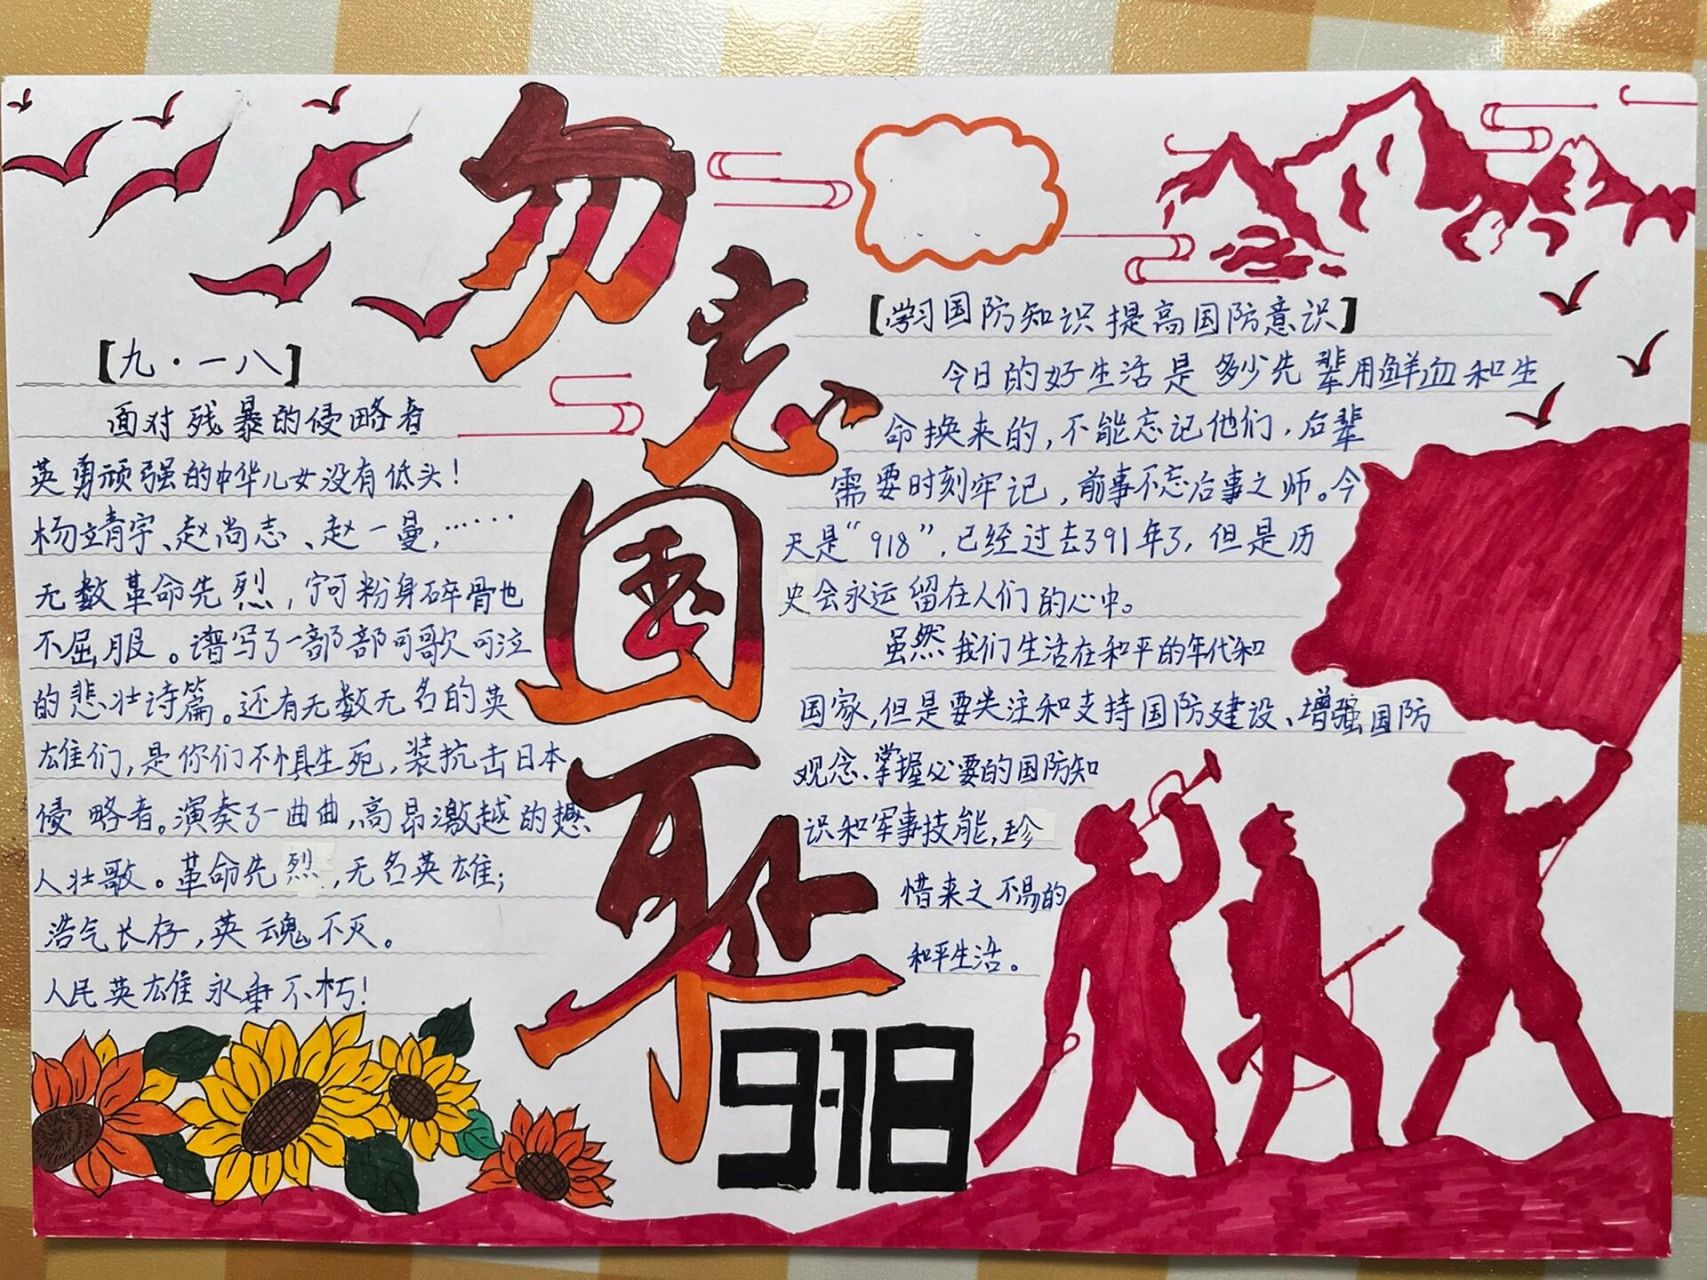 勿忘国耻
9·18
【九·一八】
面对残暴的侵略者
英勇顽强的中华儿女没有低头！
杨立青宇、赵尚志、赵一曼，……
无数革命先烈，宁可粉身碎骨也
不屈服。谱写了一部部可歌可泣
的悲壮诗篇。还有无数无名的英
雄们，是你们不惧生死，装抗击日本
侵略者。演奏了一曲曲，高昂激越的撼
人壮歌。革命先烈，无名英雄；
浩气长存，英魂不灭。
人民英雄永垂不朽！
【学习国防知识提高国防意识】
今日的好生活是多少先辈用鲜血和生
命换来的，不能忘记他们，后辈
需要时刻牢记，前事不忘后事之师。今
天是“918”，已经过去391年了，但是历
史会永运留在人们的心中。
虽然我们生活在和平的年代和
国家，但是要关注和支持国防建设、增强国防
观念、掌握必要的国防知
识和军事技能，珍
惜来之不易的
和平生活。